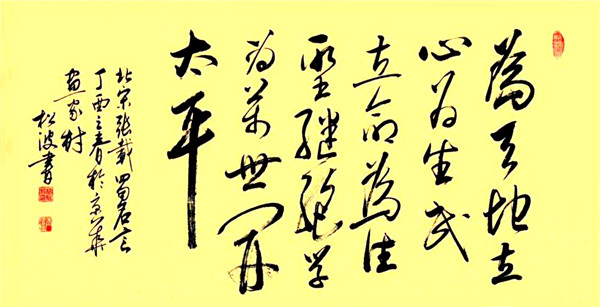 為天地立
心为生民
立命為往
聖繼絶学
为萬世開
太平
北宋張載四句言
丁酉之春於京華
畫家村
松波書